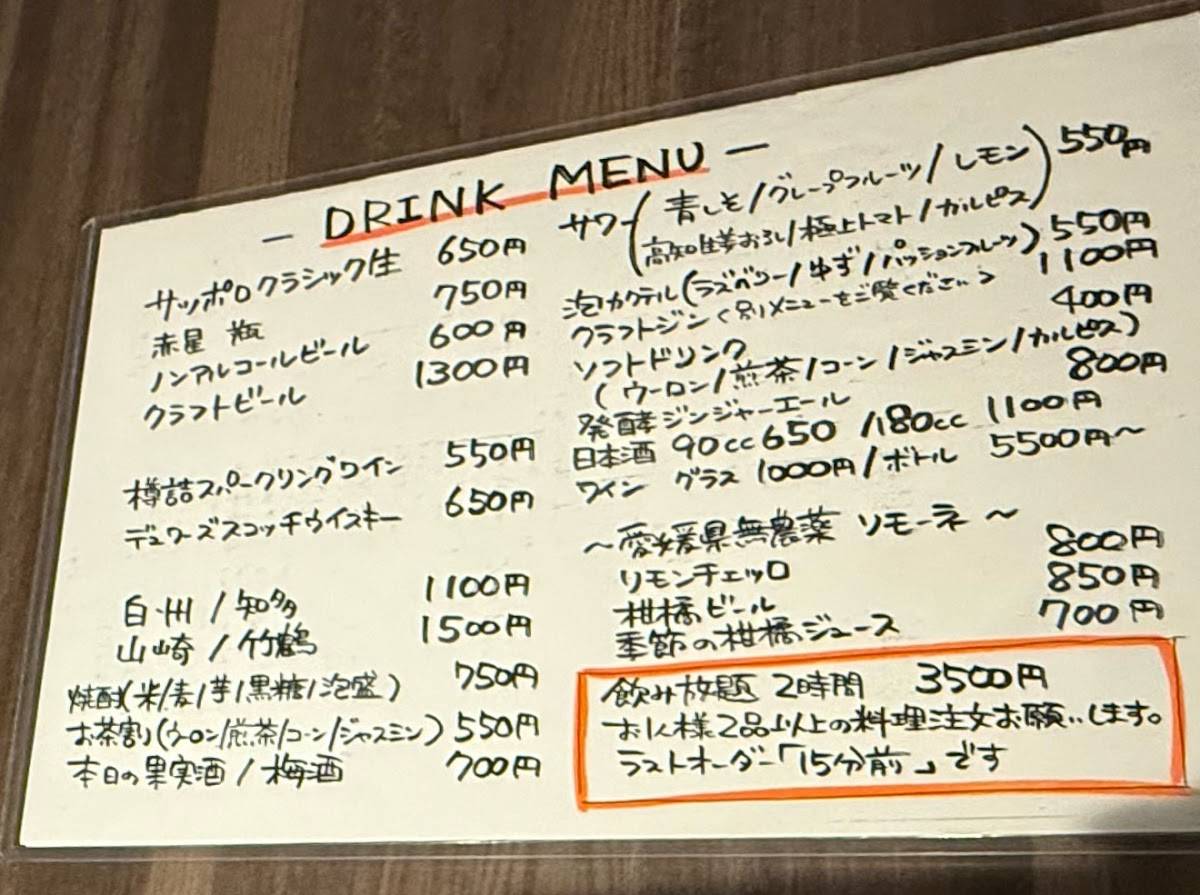 - DRINK MENU -
サッポロクラシック生 650円
赤星 瓶 750円
ノンアルコールビール 600円
クラフトビール 1300円
樽詰スパークリングワイン 550円
デュワーズスコッチウイスキー 650円
白州/知多 1100円
山崎/竹鶴 1500円
焼酎(米/麦/芋/黒糖/泡盛) 750円
お茶割(ウーロン/煎茶/コーン/ジャスミン) 550円
本日の果実酒/梅酒 700円
サワー(青しそ/グレープフルーツ/レモン 550円
高知生姜おろし/極上トマト/カルピス)
泡カクテル(ラズベリー/ゆず/パッションフルーツ) 550円
クラフトジン<別メニューをご覧ください> 1100円
ソフトドリンク 400円
(ウーロン/煎茶/コーン/ジャスミン/カルピス)
発酵ジンジャーエール 800円
日本酒 90cc 650 /180cc 1100円
ワイン グラス 1000円/ボトル 5500円〜
〜愛媛県無農薬 リモーネ〜
リモンチェッロ 800円
柑橘ビール 850円
季節の柑橘ジュース 700円
飲み放題 2時間 3500円
お1人様2品以上の料理注文お願いします。
ラストオーダー「15分前」です